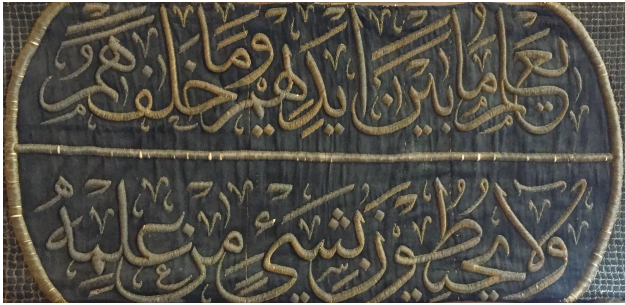 يعلم ما بين ايديهم وما خلفهم
ولا يحيطون بشيء من علمه